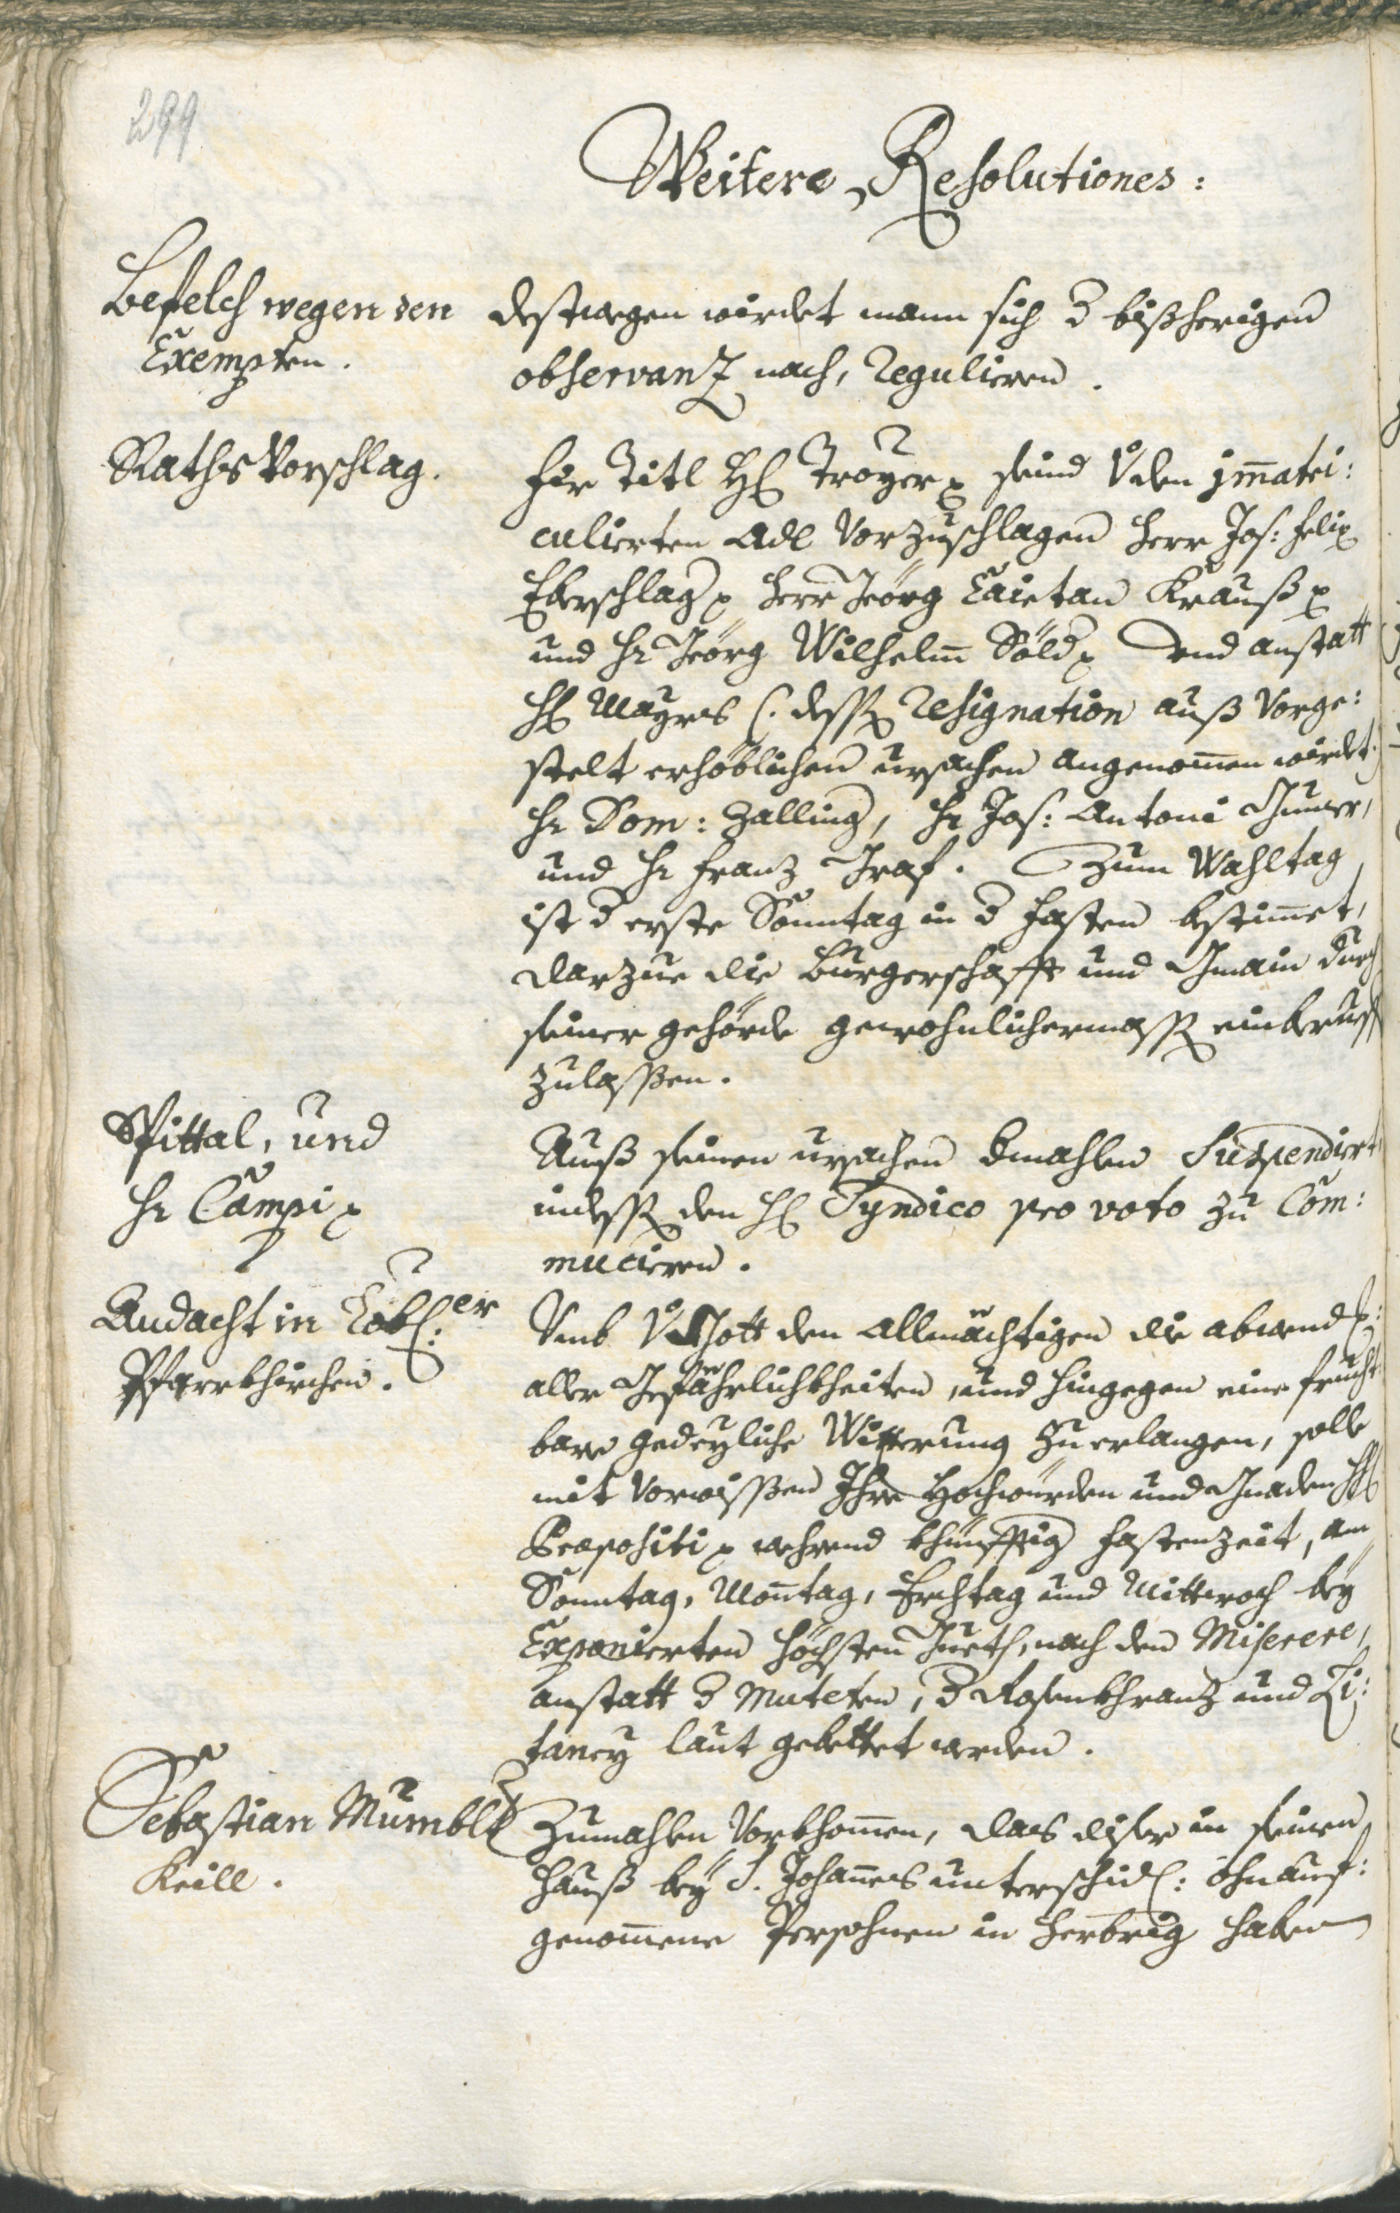 299
Weitere Resolutiones:
Befelch wegen den
Exempten.
destwegen wirdet mann sich d bißherigen
observanz nach, Regulieren.
Raths Vorschlag.
Fir Titl H: Troyer seind V den jm̄atri:
culierten Adl Vorzuschlagen Herr Jos: Felix
Eberschlag Herr Jeörg Caietan Krauß
und Hr Jeörg Wilhelm̄ Söld Vnd anstatt
H: Mayrs (: dessen Resignation auß Vorge:
stelt erhöblichen ursachen angenom̄en wirdet:)
Hr Dom: Zalling, Hr Jos: Antoni
und Hr Franz Graf. Zum Wahltag
ist d erste Sonntag in d Fasten bestim̄et,
darzue die Burgerschafft und Gmain durch
seiner gehörde gewohnlichermassen einberueffen
zulassßen.
Spittal, und
Hr Campi
Auß seinen ursachen dmahlen Suspendiert
indessen den H: Syndico pro voto zu Com:
mucieren.
Andacht in Löbl:er
Pfarrkhirchen.
Vmb V Gott den Allmächtigen die abwend:
aller Gefährlichkheiten, und hingegen eine frucht
bare gedeyliche Witterung zu erlangen, solle
mit Vorwissßen Ihre Hochwürden und Gnaden H:
Praepositi wehrend khünfftig Fastenzeit, am
Sonntag, Mon̄tag, Erchtag und Mittwoch bey
Exponierten Höchsten Gueth, nach den Miserere,
anstatt d Muteten, d Rosenkhranz und Li:
taney laut gebettet werden.
Sebastian Mumbl
Keill.
Zumahlen Vorkhom̄en, das diser in seinen
Hauß bey S. Johan̄es unterschidl: ohnauf:
genom̄ene Persohnen in Herbrig haben